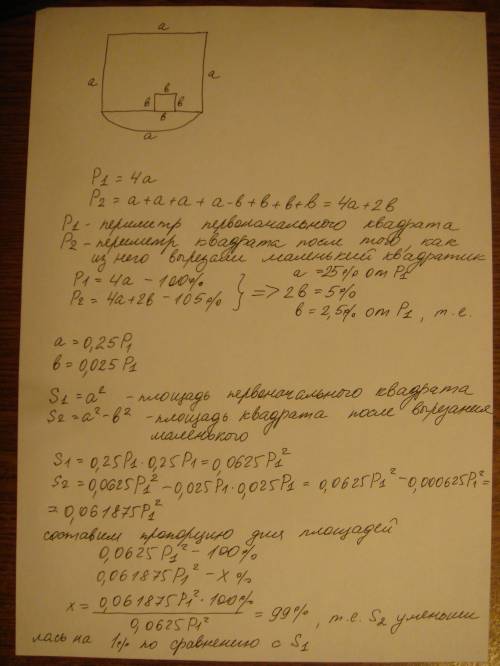 a
a
a
в
в
в
в
a
P1 = 4a
P2 = a+a+a+a-в+в+в+в = 4a+2в
P1 - периметр первоначального квадрата
P2 - периметр квадрата после того, как
из него вырезали маленький квадратик
P1 = 4a - 100%
P2 = 4a+2в - 105%
} =>
a = 25% от P1
2в = 5%
в = 2,5% от P1, т.е.
a = 0,25P1
в = 0,025P1
S1 = a² - площадь первоначального квадрата
S2 = a² - в² - площадь квадрата после вырезания
маленького
S1 = 0,25P1 · 0,25P1 = 0,0625P1²
S2 = 0,0625P1² - 0,025P1 · 0,025P1 = 0,0625P1² - 0,000625P1² =
= 0,061875P1²
составим пропорцию для площадей
0,0625P1² - 100%
0,061875P1² - x%
x = 0,061875P1² · 100% / 0,0625P1² = 99%, т.е. S2 уменьши
лась на 1% по сравнению с S1